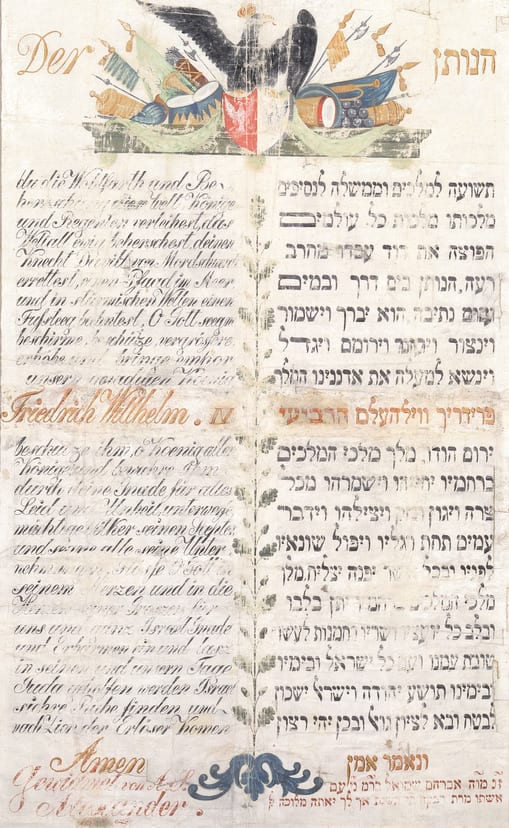 Der
du die Wohlfarth und Be-
und Regenten verleihest, das
Weltall ewig beherschest, deinen
Knecht David vom Mordschwerd
errettest, einen Pfad im Meer
und in stürmischen Wellen einen
Fußsteeg bahntest, O Gott seegne
beschirme, beschüze, vergrösere
erhöhe und bringe Empor
unsern gnädigen Koenig
Friedrich Wilhelm. IV
beschüze ihn, o Koenig aller
Könige und bewahre Ihn
durch deine Gnade für alles
Leid und Unheil, unterwerfe
Völker seinen
und alle seine Unter
O Gott in
seinem Herzen und in die
Herzen seiner Groszen für
uns und ganz Israel Gnade
und Erbarmen ein und Lasz
in seinen und unsern Tage
Juda geholfen werden Israel
sichre Ruhe finden und
nach Zion der Erlöser Komen
Amen
Gewidmet von A. S.
Alexander.
הנותן
תשועה למלכים וממשלה לנסיכים
מלכותו מלכות כל עולמים
הפוצה את דוד עבדו מחרב
רעה, הנותן בים דרך ובמים
עזים נתיבה, הוא יברך וישמור
וינצור ויעזור וירומם ויגדל
וינשא למעלה את אדנינו המלך
פרידריך ווילהעלם הרביעי
ירום הודו, מלך מלכי המלכים
ברחמיו יחייהו וישמרהו מכל
צרה ויגון ונזק ויצילהו וידבר
עמים תחת רגליו ויפיל שונאיו
לפניו ובכל אשר יפנה יצליח, מלך
מלכי המלכים ברחמיו יתן בלבו
ובלב כל יועציו ושריו רחמנות לעשות
טובה עמנו ועם כל ישראל ובימיו
ובימינו תושע יהודה וישראל ישכון
לבטח ובא לציון גואל ובכן יהי רצון
ונאמר אמן
אברהם שמואל
אשתו מרת